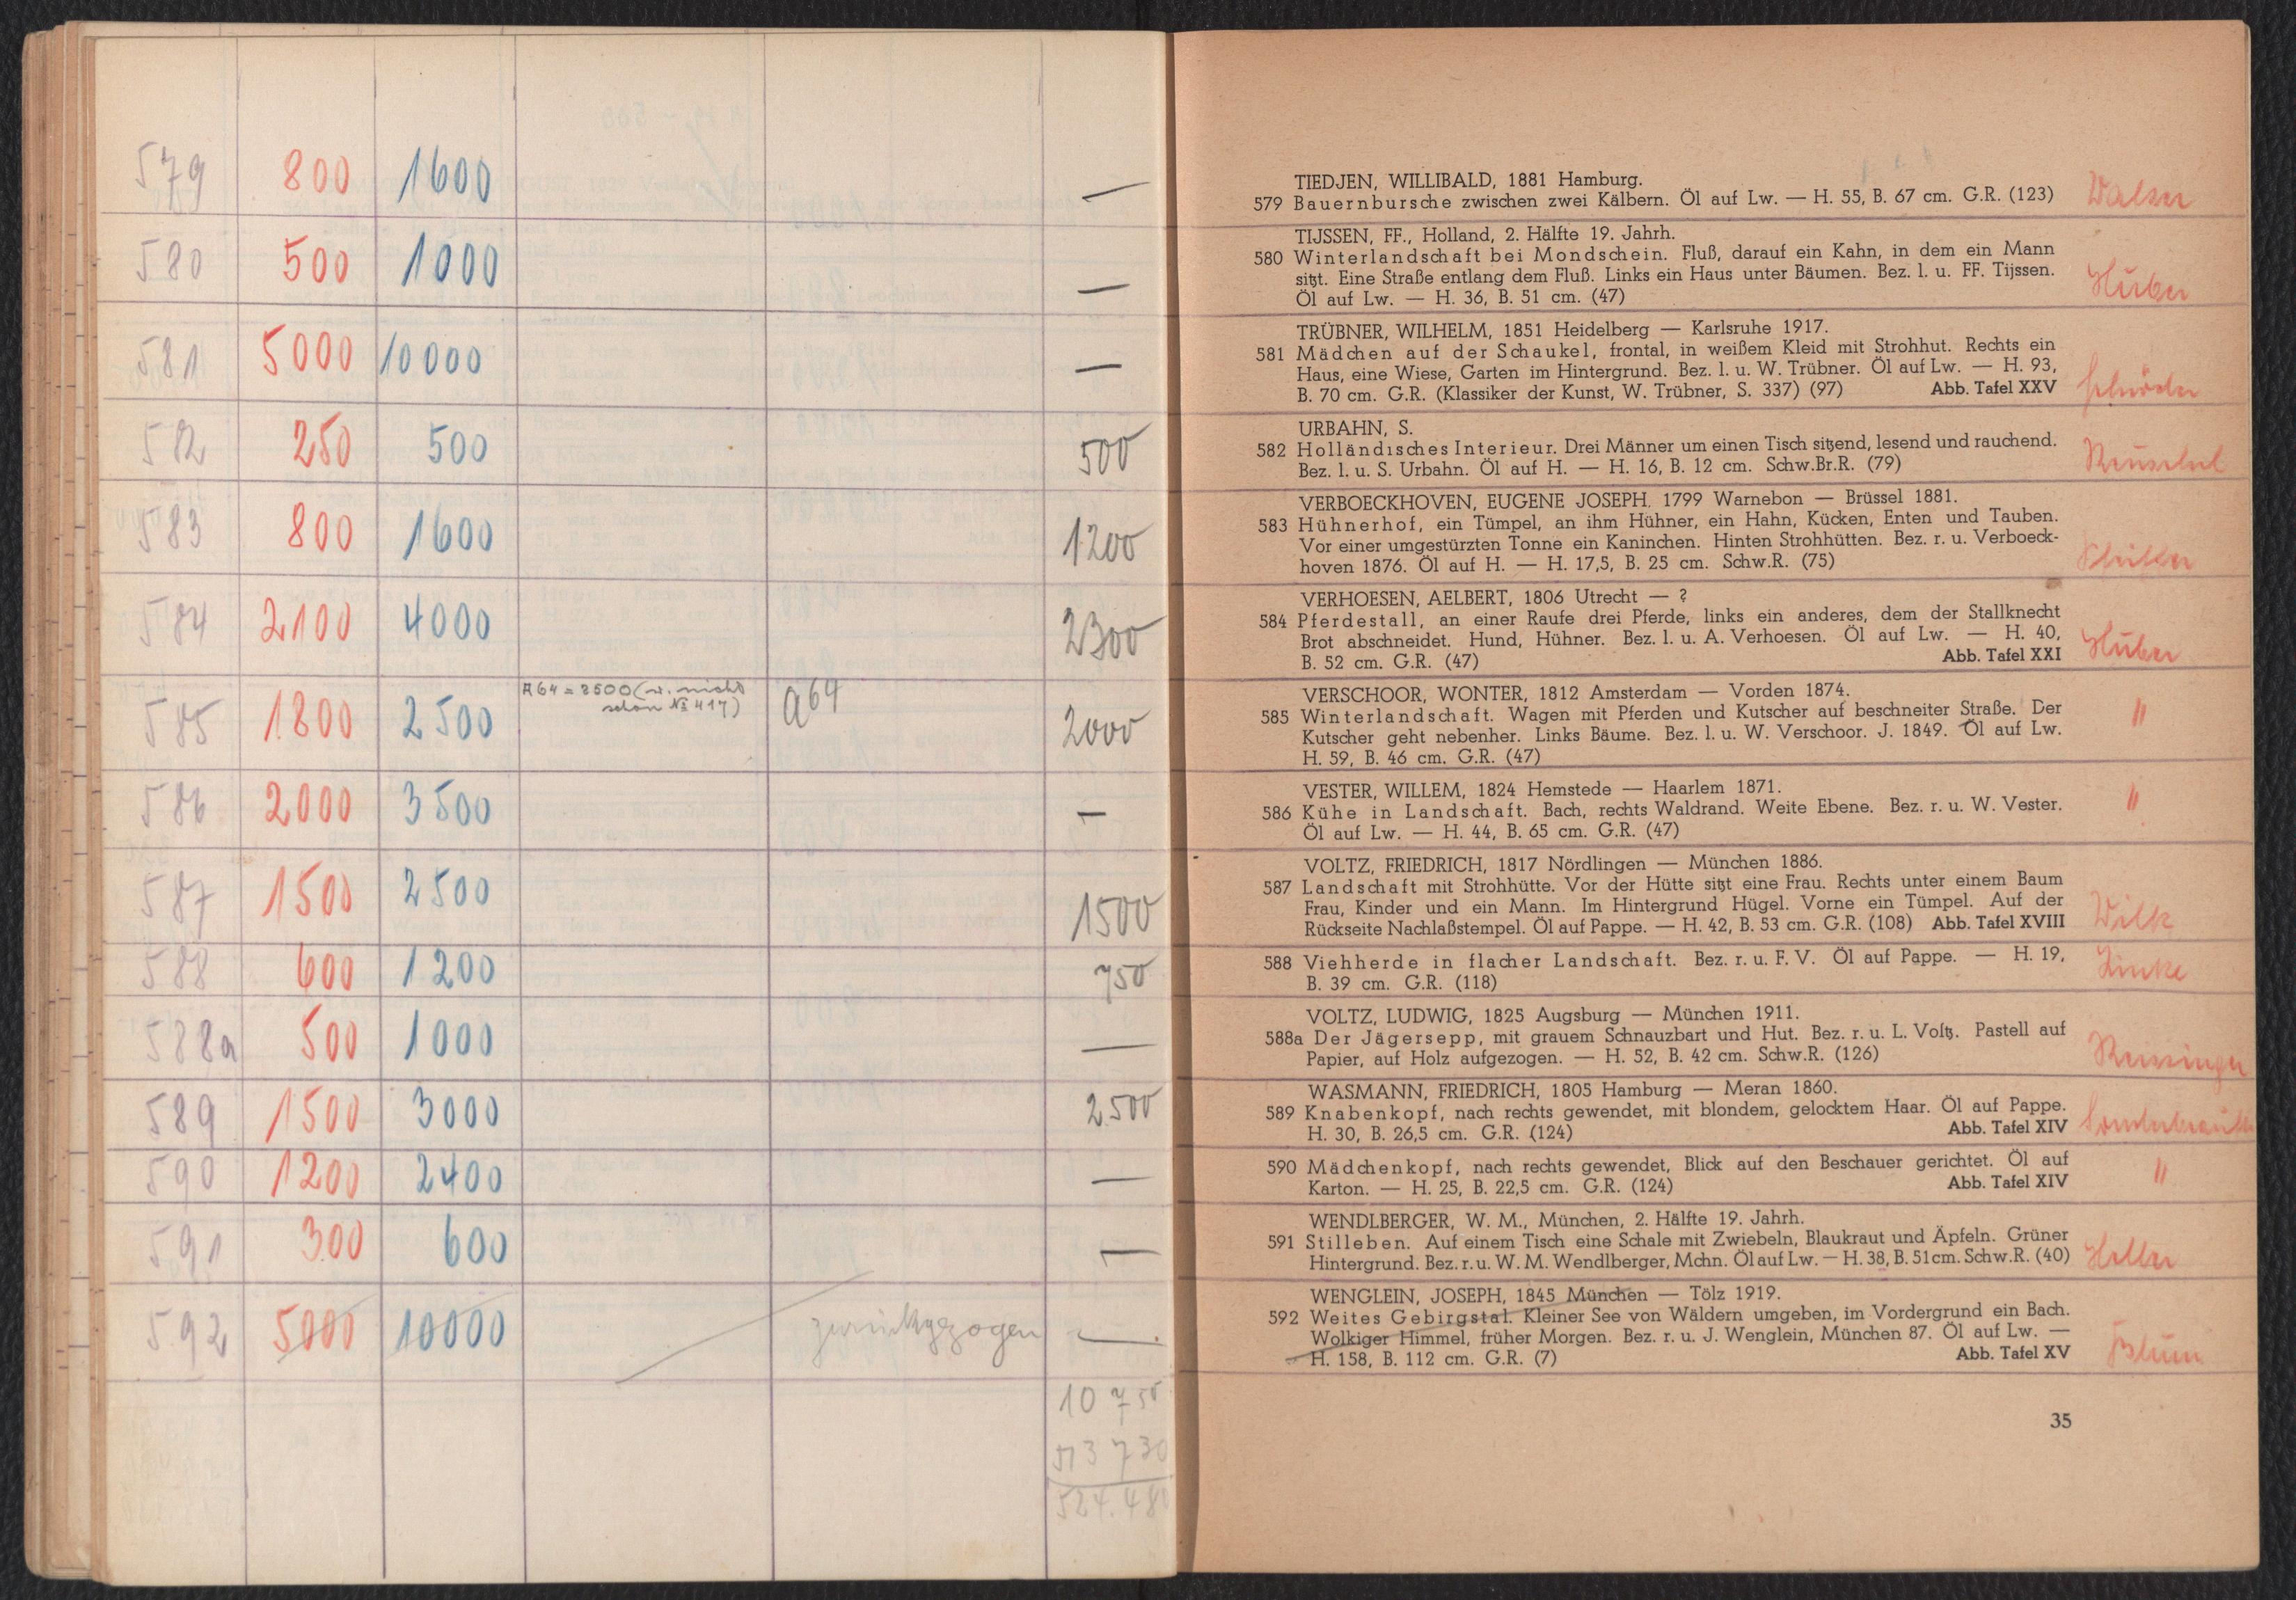 579 800 1600 —
580 500 1000 —
581 5000 10000 —
582 250 500 500
583 800 1600 1200
584 2100 4000 2300
585 1800 2500 A64 = 2500 (w. nicht a64 2000
schon № 417)
586 2000 3500 —
587 1500 2500 1500
588 600 1200 750
588a 500 1000 —
589 1500 3000 2500
590 1200 2400 —
591 300 600 —
592 5000 10000 zurückgezogen —
10 750
513 730
524.480
TIEDJEN, WILLIBALD, 1881 Hamburg.
579 Bauernbursche zwischen zwei Kälbern. Öl auf Lw. — H. 55, B. 67 cm. G.R. (123) Walser
TIJSSEN, FF., Holland, 2. Hälfte 19. Jahrh.
580 Winterlandschaft bei Mondschein. Fluß, darauf ein Kahn, in dem ein Mann
sitzt. Eine Straße entlang dem Fluß. Links ein Haus unter Bäumen. Bez. l. u. FF. Tijssen.
Öl auf Lw. — H. 36, B. 51 cm. (47) Huber
TRÜBNER, WILHELM, 1851 Heidelberg — Karlsruhe 1917.
581 Mädchen auf der Schaukel, frontal, in weißem Kleid mit Strohhut. Rechts ein
Haus, eine Wiese, Garten im Hintergrund. Bez. l. u. W. Trübner. Öl auf Lw. — H. 93,
B. 70 cm. G.R. (Klassiker der Kunst, W. Trübner, S. 337) (97) Abb. Tafel XXV Schröder
URBAHN, S.
582 Holländisches Interieur. Drei Männer um einen Tisch sitzend, lesend und rauchend.
Bez. l. u. S. Urbahn. Öl auf H. — H. 16, B. 12 cm. Schw.Br.R. (79) Reuschel
VERBOECKHOVEN, EUGENE JOSEPH. 1799 Warnebon — Brüssel 1881.
583 Hühnerhof, ein Tümpel, an ihm Hühner, ein Hahn, Kücken, Enten und Tauben.
Vor einer umgestürzten Tonne ein Kaninchen. Hinten Strohhütten. Bez. r. u. Verboeck-
hoven 1876. Öl auf H. — H. 17,5, B. 25 cm. Schw.R. (75)
VERHOESEN, AELBERT, 1806 Utrecht — ?
584 Pferdestall, an einer Raufe drei Pferde, links ein anderes, dem der Stallknecht
Brot abschneidet. Hund, Hühner. Bez. l. u. A. Verhoesen. Öl auf Lw. — H. 40,
B. 52 cm. G.R. (47) Abb. Tafel XXI Huber
VERSCHOOR, WONTER, 1812 Amsterdam — Vorden 1874.
585 Winterlandschaft. Wagen mit Pferden und Kutscher auf beschneiter Straße. Der "
Kutscher geht nebenher. Links Bäume. Bez. l. u. W. Verschoor. J. 1849. Öl auf Lw.
H. 59, B. 46 cm. G.R. (47)
VESTER, WILLEM, 1824 Hemstede — Haarlem 1871.
586 Kühe in Landschaft. Bach, rechts Waldrand. Weite Ebene. Bez. r. u. W. Vester. "
Öl auf Lw. — H. 44, B. 65 cm. G.R. (47)
VOLTZ, FRIEDRICH, 1817 Nördlingen — München 1886.
587 Landschaft mit Strohhütte. Vor der Hütte sitzt eine Frau. Rechts unter einem Baum
Frau, Kinder und ein Mann. Im Hintergrund Hügel. Vorne ein Tümpel. Auf der
Rückseite Nachlaßstempel. Öl auf Pappe. — H. 42, B. 53 cm. G.R. (108) Abb. Tafel XVIII Wilk
588 Viehherde in flacher Landschaft. Bez. r. u. F. V. Öl auf Pappe. — H. 19, Zinke
B. 39 cm. G.R. (118)
VOLTZ, LUDWIG, 1825 Augsburg — München 1911.
588a Der Jägersepp, mit grauem Schnauzbart und Hut. Bez. r. u. L. Voltz. Pastell auf
Papier, auf Holz aufgezogen. — H. 52, B. 42 cm. Schw.R. (126) Reisinger
WASMANN, FRIEDRICH, 1805 Hamburg — Meran 1860.
589 Knabenkopf, nach rechts gewendet, mit blondem, gelocktem Haar. Öl auf Pappe.
H. 30, B. 26,5 cm. G.R. (124) Abb. Tafel XIV
590 Mädchenkopf, nach rechts gewendet, Blick auf den Beschauer gerichtet. Öl auf "
Karton. — H. 25, B. 22,5 cm. G.R. (124) Abb. Tafel XIV
WENDLBERGER, W. M., München, 2. Hälfte 19. Jahrh.
591 Stilleben. Auf einem Tisch eine Schale mit Zwiebeln, Blaukraut und Äpfeln. Grüner
Hintergrund. Bez. r. u. W. M. Wendlberger, Mchn. Öl auf Lw. — H. 38, B. 51 cm. Schw.R. (40) Heller
WENGLEIN, JOSEPH, 1845 München — Tölz 1919.
592 Weites Gebirgstal. Kleiner See von Wäldern umgeben, im Vordergrund ein Bach.
Wolkiger Himmel, früher Morgen. Bez. r. u. J. Wenglein, München 87. Öl auf Lw. —
H. 158, B. 112 cm. G.R. (7) Abb. Tafel XV Blum
35